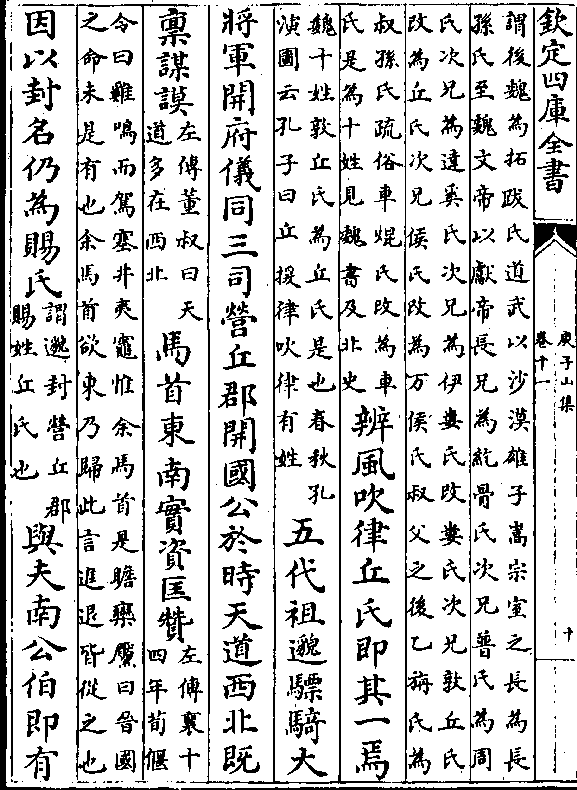 欽定四庫全書
庾子山集
卷十一
十
謂後魏為拓跋氏道武以沙漠雄子嵩宗室之長為長
孫氏至魏文帝以獻帝長兄為紇骨氏次兄普氏為周
氏次兄為達奚氏次兄為伊婁氏改婁氏次兄敦丘氏
改為丘氏次兄侯氏改為万侯氏叔父之後乙旃氏為
叔孫氏疏俗車焜氏改為車
氏是為十姓見魏書及北史
辨風吹律丘氏即其一焉
魏十姓敦丘氏為丘氏是也春秋孔
演圖云孔子曰丘援律吹律有姓
五代祖邈驃騎大
將軍開府儀同三司營丘郡開國公於時天道西北既
禀謀謨
左傳董叔曰天
道多在西北
馬首東南實資匡贊
左傳襄十
四年荀偃
令曰雞鳴而駕塞井夷竈惟余馬首是瞻欒黶曰晉國
之命未是有也余馬首欲東乃歸此言進退皆從之也
因以封名仍為賜氏
謂邈封營丘郡
賜姓丘氏也
與夫南公伯即有